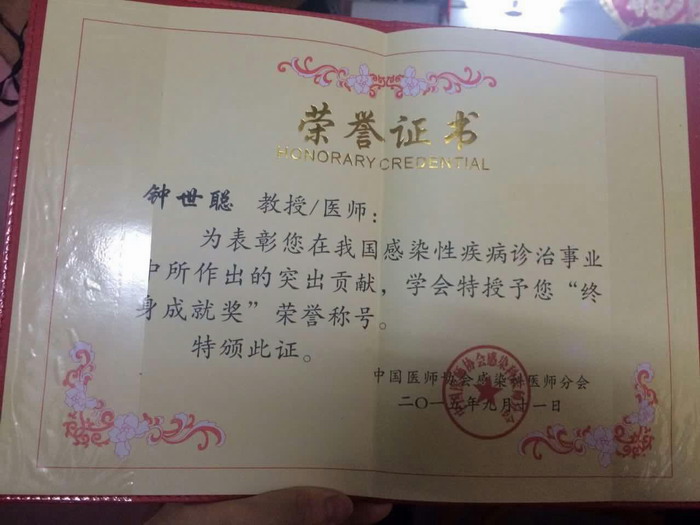 荣誉证书
HONORARY CREDENTIAL
钟世聪 教授/医师：
为表彰您在我国感染性疾病诊治事业
中所作出的突出贡献，学会特授予您“终
身成就奖”荣誉称号。
特颁此证。
中国医师协会感染科医师分会
二〇一五年九月十一日